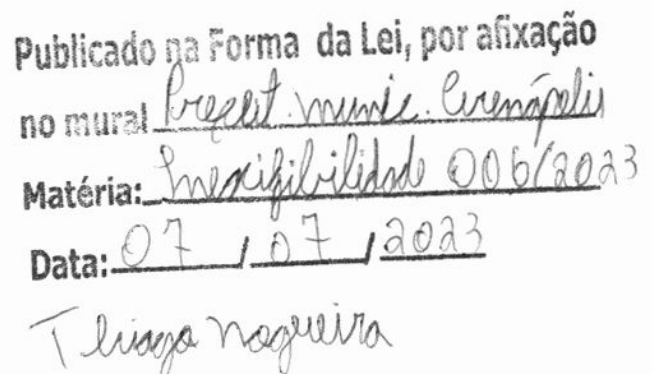 Publicado na Forma da Lei, por afixação
no mural Prefeit. munic. Arenápolis
Matéria: Inexigibilidade 006/2023
Data: 07 / 07 / 2023
Thiago Nogueira